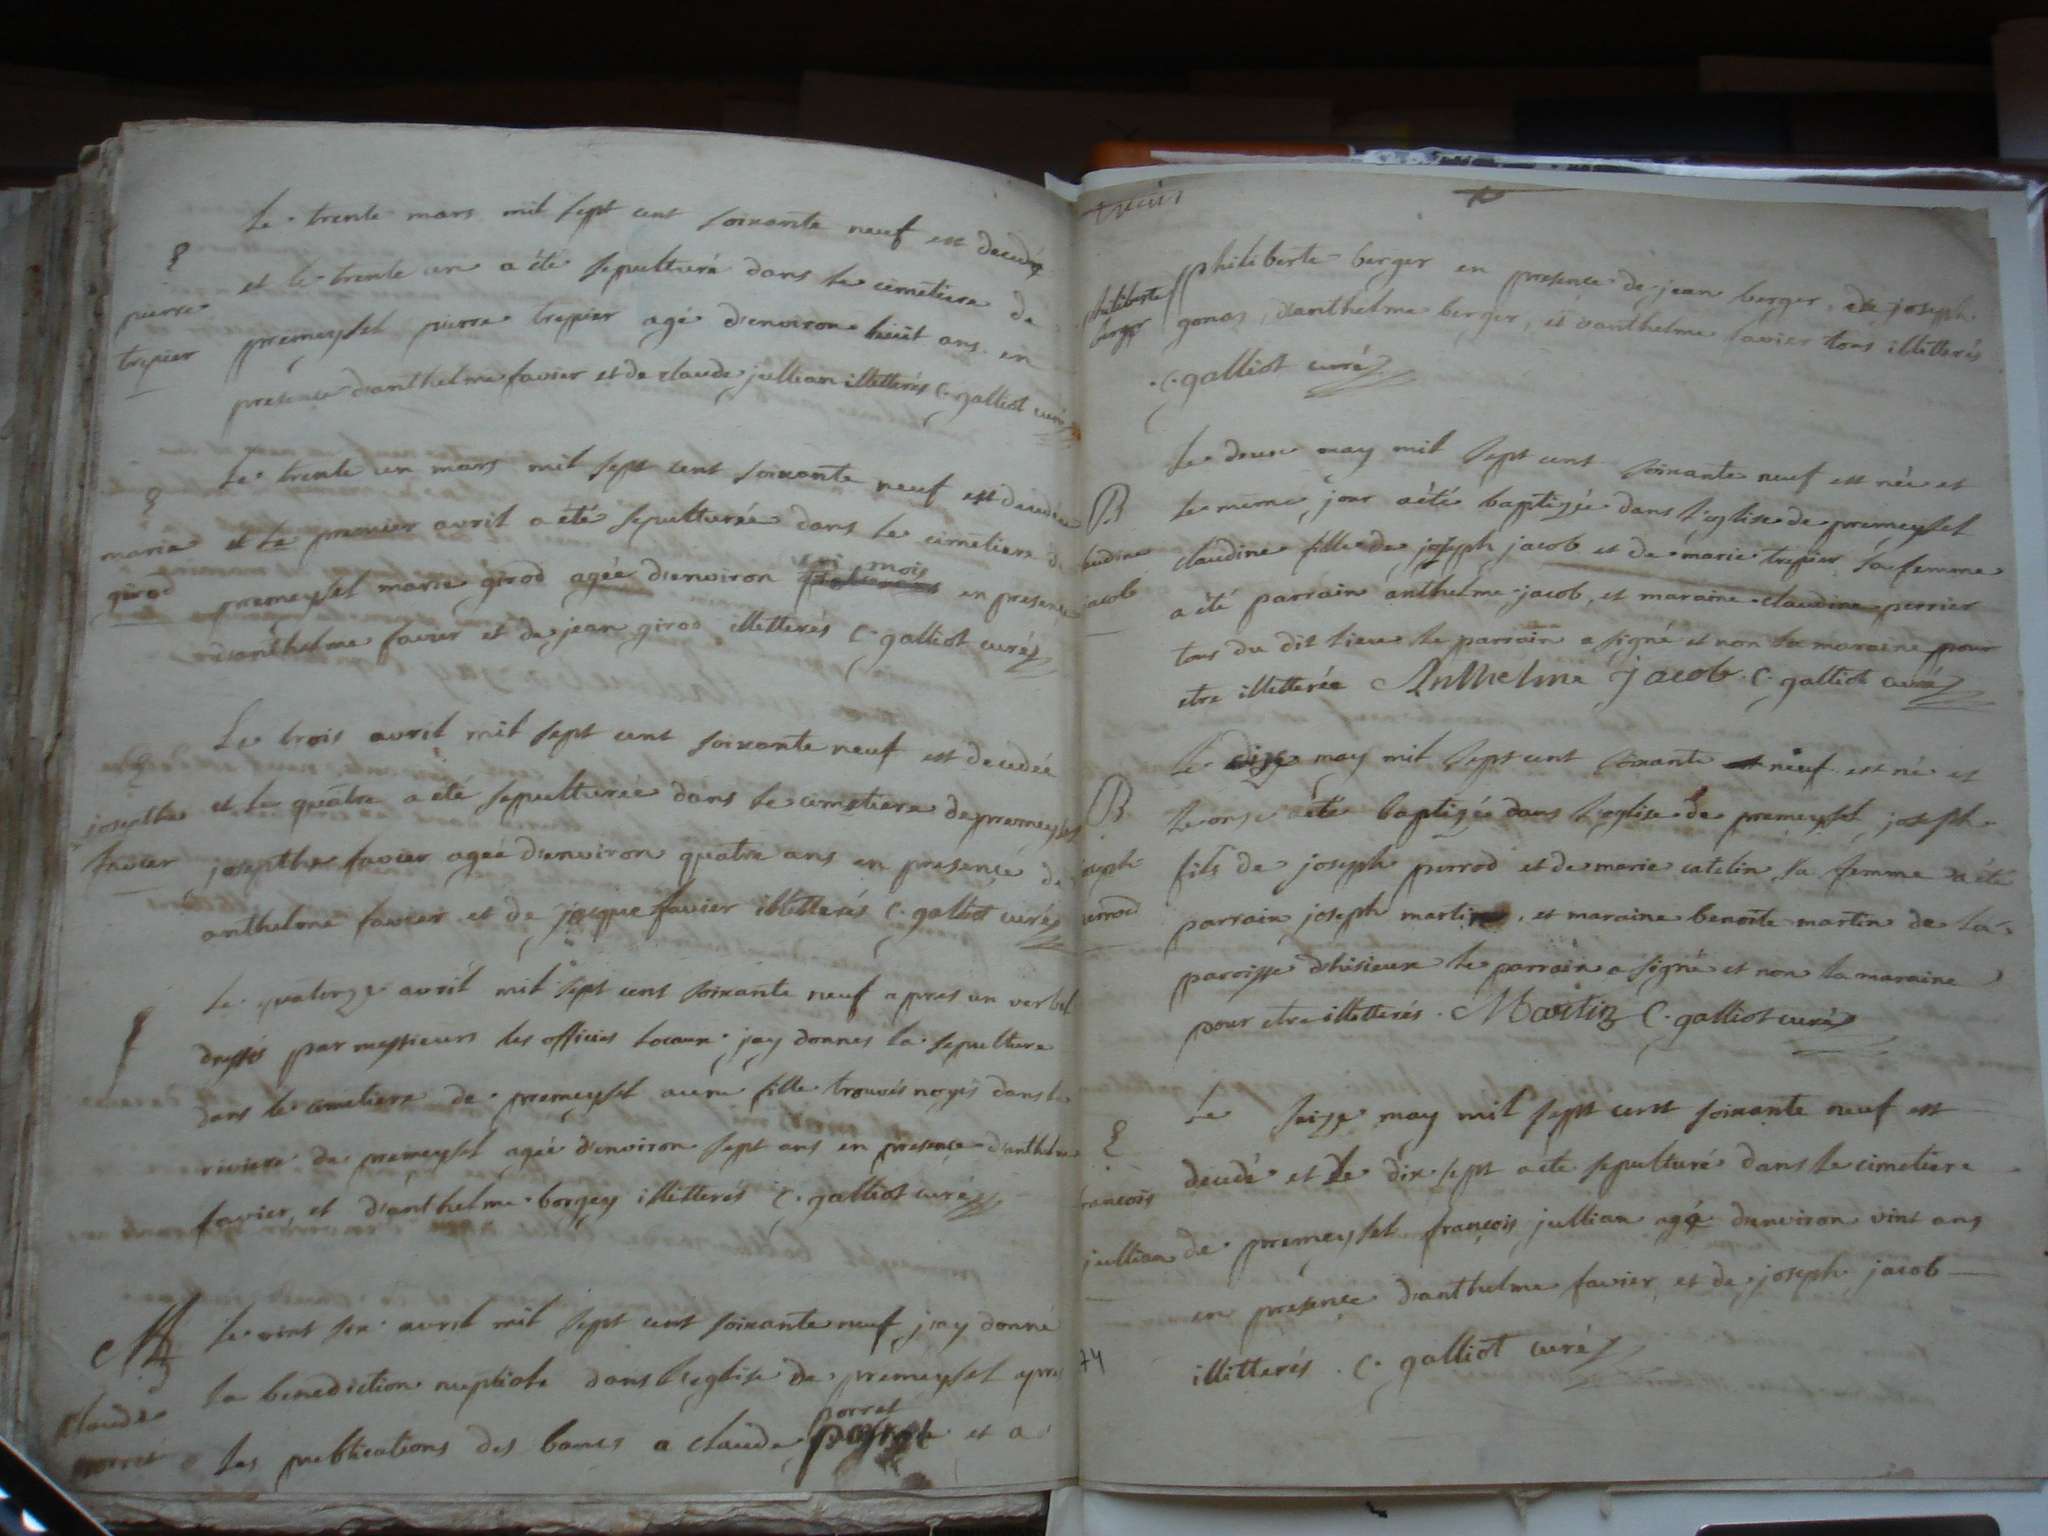 Le trente mars mil sept cent soixante neuf est decedé
pierre
trepier
et le trente un a été sepulturé dans le cimetiere de
premeysel pierre trepier agé d'environ huit ans en
presence d'anthelme favier et de claude jullian illetterés C. galliot curé
Le trente un mars mil sept cent soixante neuf est decedée
marie
girod
et le premier avril a été sepulturée dans le cimetiere d
premeysel marie girod agée d'environ mois en presence
d'anthelme favier et de jean girod illetterés C. galliot curé
Le trois avril mil sept cent soixante neuf est decedée
josephte
favier
et le quatre a été sepulturée dans le cimetiere de premeysel
josephte favier agée d'environ quatre ans en presence de
anthelme favier et de jacque favier illetterés C. galliot curé
Le quatorze avril mil sept cent soixante neuf apres un verbal
dressés par messieurs les officiés locaux jay donnés la sepulture
dans le cimetiere de premeysel a une fille trouvés noyés dans le
riviere de premeysel agée d'environ sept ans en presence d'anthelme
favier et d'anthelme borgey illetterés C. galliot curé
M
Le vint six avril mil sept cent soixante neuf jay donné
claude
porret
la benediction nuptiale dans l'eglise de premeysel apres
les publications des bancs a claude porret et a
philiberte
berger
philiberte berger en presence de jean berger, de joseph
gonas, d'anthelme berger, et d'anthelme favier tous illetterés
C. galliot curé
B
claudine
jacob
Le douse may mil sept cent soixante neuf est née et
le meme jour a été baptizée dans l'eglise de premeysel
claudine fille de joseph jacob et de marie trepier sa femme
a été parrain anthelme jacob, et maraine claudine perrier
tous du dit lieu le parrain a signé et non la maraine pour
etre illetterée Anthelme jacob C. galliot curé
B
joseph
perrod
Le dize may mil sept cent soixante neuf est né et
le onse a été baptizé dans l'eglise de premeysel joseph
fils de joseph perrod et de marie catelin sa femme a été
parrain joseph martin, et maraine benoite martin de la
paroisse d'hisieux le parrain a signé et non la maraine
pour etre illetterés. Martin C. galliot curé
françois
jullian
Le seize may mil sept cent soixante neuf est
decedé et le dix sept a été sepulturé dans le cimetiere
de premeysel françois jullian agé d'environ vint ans
en presence d'anthelme favier, et de joseph jacob
illitterés. C. galliot curé
74